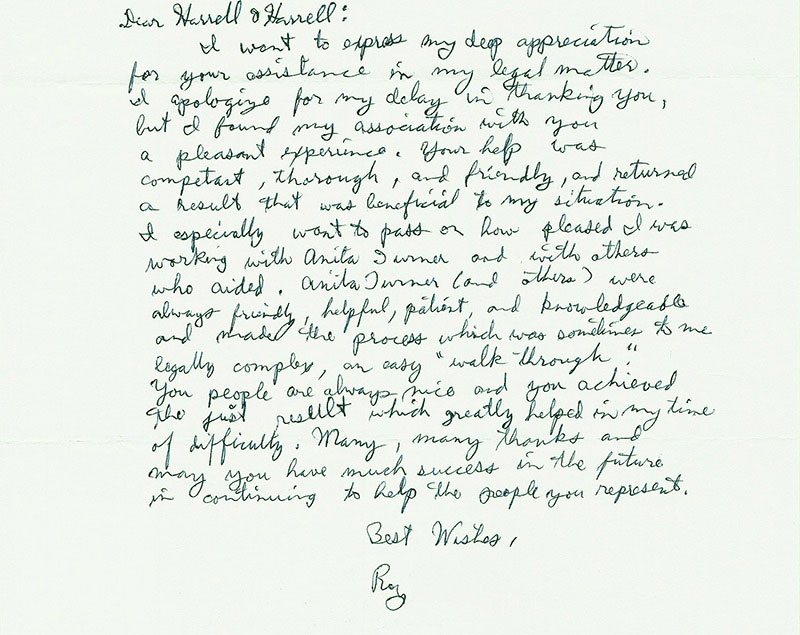 Dear Harrell & Harrell:
I want to express my deep appreciation
for your assistance in my legal matter.
I apologize for my delay in thanking you,
but I found my association with you
a pleasant experience. Your help was
competant, thorough, and friendly, and returned
a result that was beneficial to my situation.
I especially want to pass on how pleased I was
working with Anita Turner and with others
who aided. Anita Turner (and others) were
always friendly, helpful, patient, and knowledgeable
and made the process which was sometimes to me
legally complex, an easy "walk through".
You people are always nice and you achieved
the just result which greatly helped in my time
of difficulty. Many, many thanks and
may you have much success in the future
in continuing to help the people you represent.
Best Wishes,
Roy